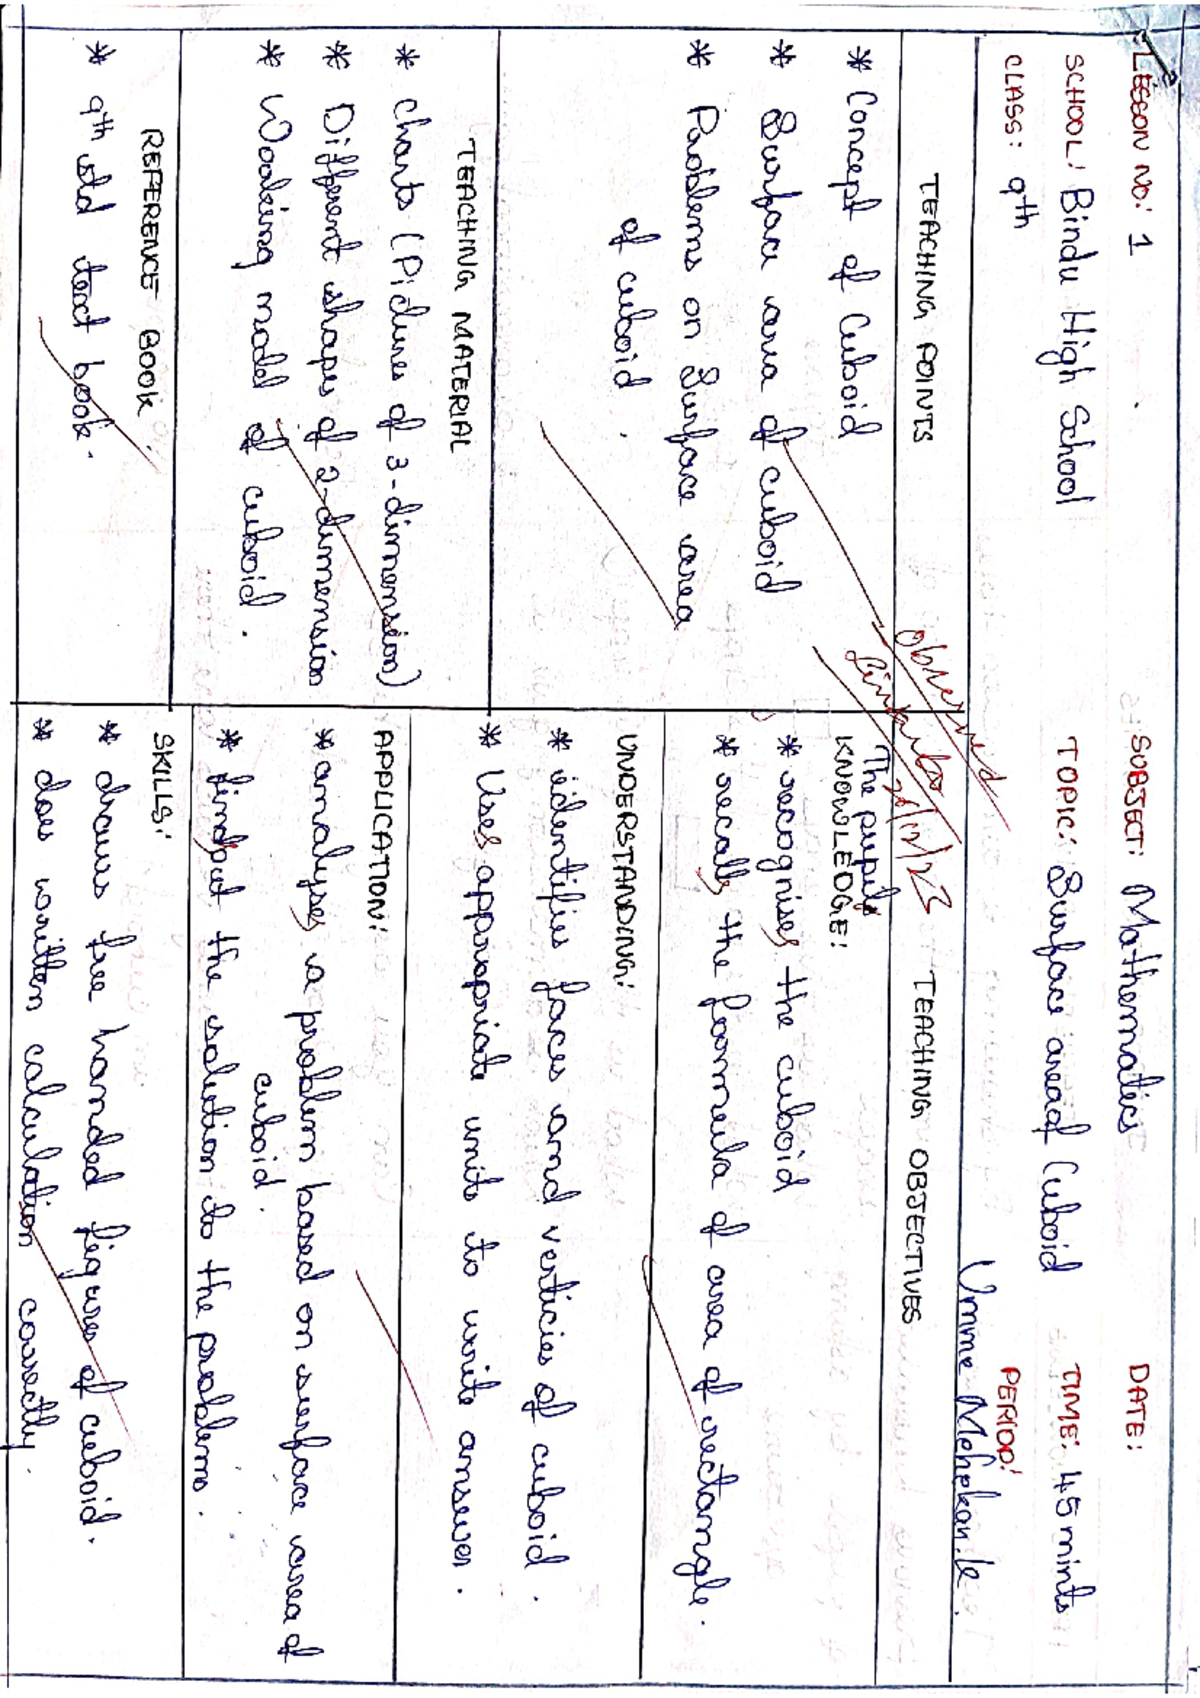 LESSON NO: 1
SUBJECT: Mathematics
DATE:
SCHOOL: Bindu High School
TOPIC: Surface area of Cuboid
TIME: 45 mints
CLASS: 9th
PERIOD:
TEACHING POINTS
* Concept of Cuboid
* Surface area of cuboid
* Problems on Surface area
of cuboid.
TEACHING MATERIAL
* Charts (Pictures of 3-dimension)
* Different shapes of 2-dimension
* Working model of cuboid.
REFERENCE BOOK:
* 9th std text book.
Observed
TEACHING OBJECTIVES
The pupils
KNOWLEDGE:
* recognises the cuboid
* recalls the formula of area of rectangle.
UNDERSTANDING:
* identifies faces and verticies of cuboid.
* Uses appropriate units to write answer.
APPLICATION:
* analyses a problem based on surface area of
cuboid.
* findout the solution to the problems.
SKILLS:
* draws free handed figures of cuboid.
* does written calculation correctly.